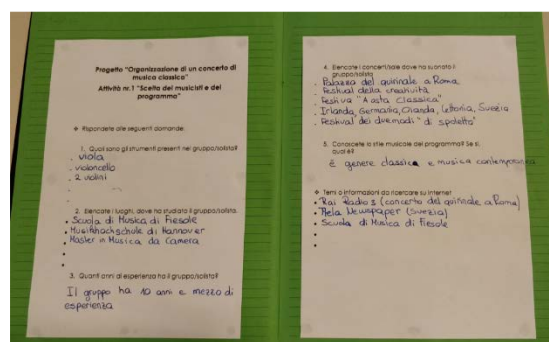 Progetto "Organizzazione di un concerto di
musica classica"
Attività nr.1 "Scelta dei musicisti e del
programma"
❖ Rispondete alle seguenti domande:
1. Quali sono gli strumenti presenti nel gruppo/solista?
. viola
. violoncello
. 2 violini
2. Elencate i luoghi, dove ha studiato il gruppo/solista.
• Scuola di Musica di Fiesole
• Musikhochschule di Hannover
• Master in Musica da Camera
3. Quanti anni di esperienza ha il gruppo/solista?
Il gruppo ha 10 anni e mezzo di
esperienza
4. Elencate i concerti/sale dove ha suonato il
gruppo/solista
. Palazzo del quirinale a Roma
. Festival della creatività
. Festival "Aosta classica"
. Irlanda, Germania, Olanda, Lettonia, Svezia
. Festival dei due mondi "di spoleto"
5. Conoscete lo stile musicale del programma? Se sì,
qual è?
È genere classica e musica contemporanea
❖ Temi o informazioni da ricercare su Internet
• Rai Radio 3 (concerto del quirinale a Roma)
• Newspaper (Svezia)
• Scuola di Musica di Fiesole